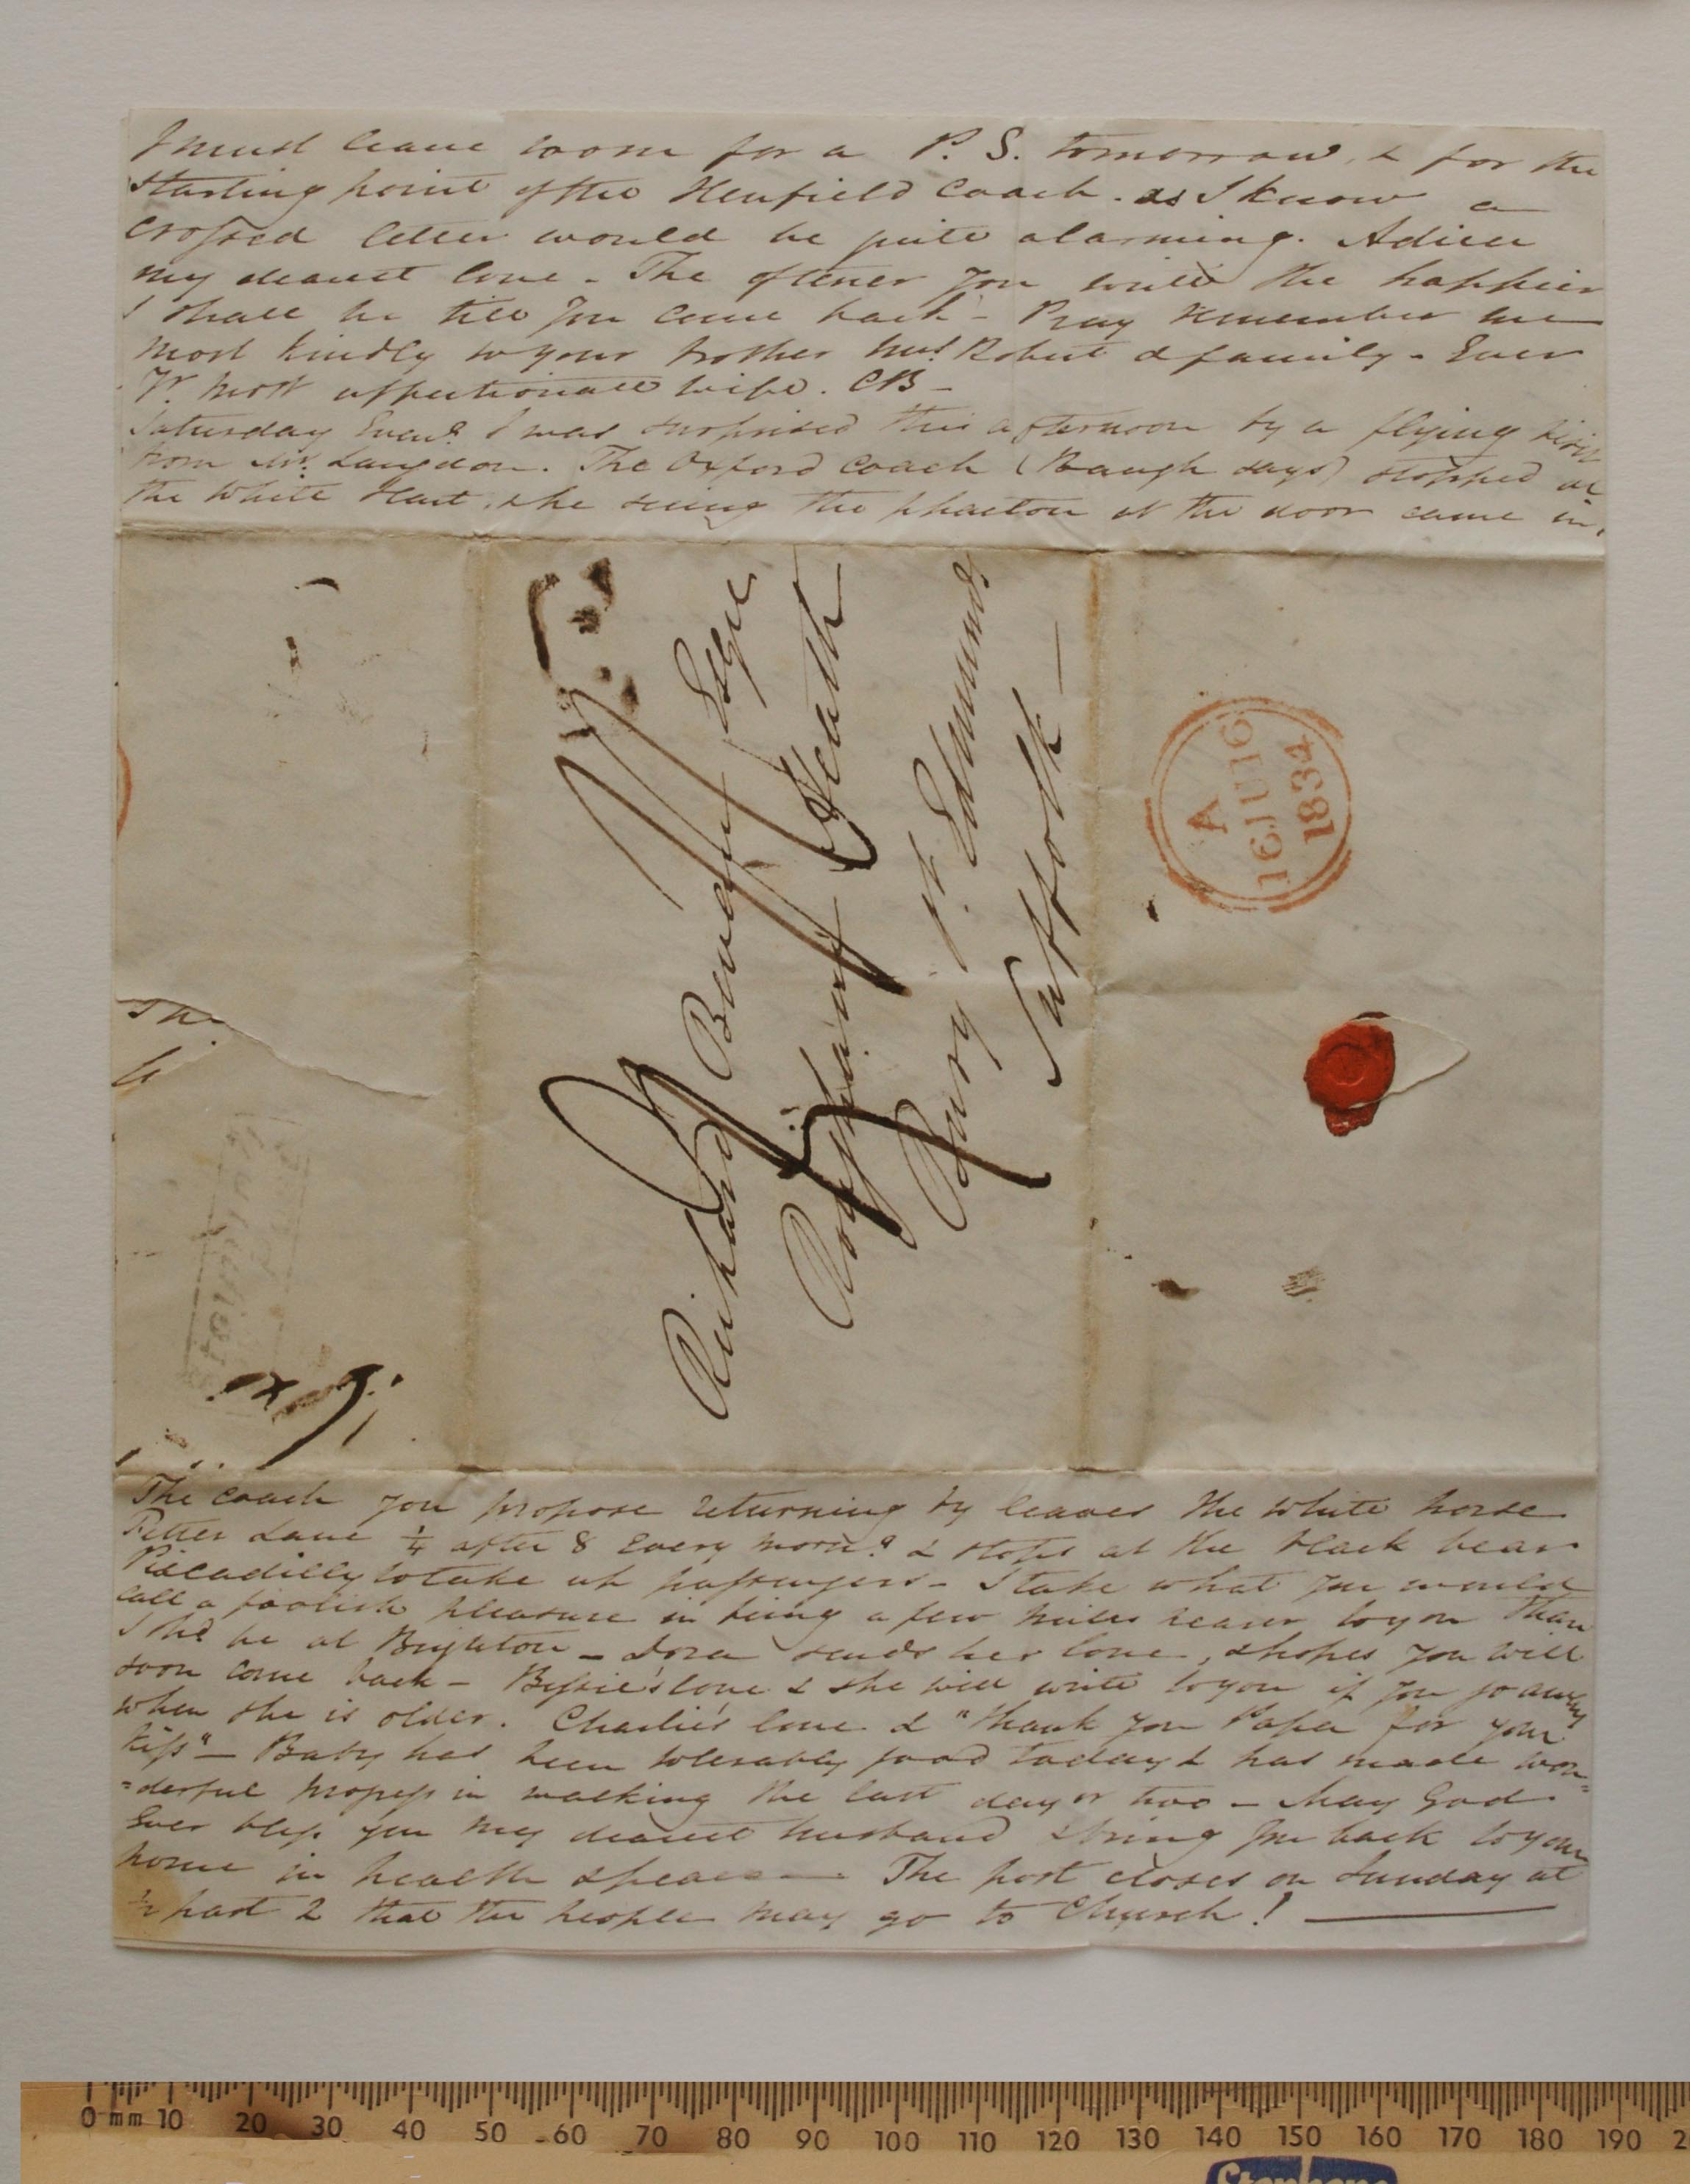 I must leave room for a P. S. tomorrow, & for the
starting point of the Henfield Coach. as I know a
crossed letter would be quite alarming. Adieu
my dearest love - The oftener you write the happier
I shall be till you come back - Pray remember me
most kindly to your brother Robert & family - Ever
Yr. most affectionate wife. CB -
Saturday Eveng. I was surprised this afternoon by a flying visit
from Mr. Langdon. The Oxford coach (Baugh says) stopped at
the White Hart, & he seeing the phaeton at the door came in.
Richard Bevan Esqre
Rougham
Bury St. Edmunds
Suffolk -
A
16 JU 16
1834
The coach you propose returning by leaves the White horse
Fetter Lane ¼ after 8 every morng. & stops at the black bear
Piccadilly to take up passengers - I take what you would
call a foolish pleasure in being a few miles nearer to you than
I shd be at Brighton - Dora sends her love, & hopes you will
soon come back - Bessie's love & she will write to you if you go away
when she is older. Charlie's love & "thank you Papa for your
kiss" - Baby has been tolerably good today & has made won=
=derful progress in walking the last day or two - May God
Ever bless you my dearest husband & bring you back to your
home in health & peace - The post closes on Sunday at
½ past 2 that the people may go to Church! -
0 mm 10 20 30 40 50 60 70 80 90 100 110 120 130 140 150 160 170 180 190 2